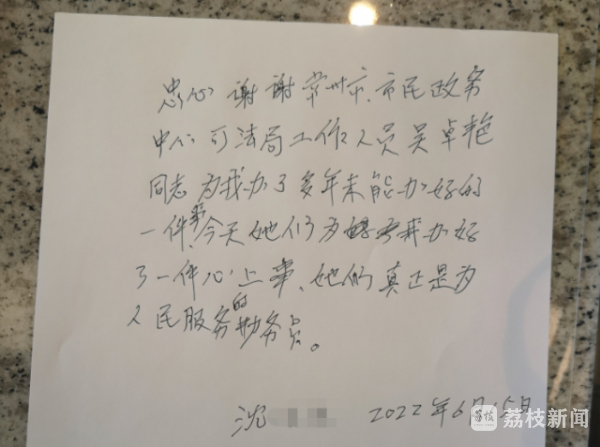 忠心谢谢常州市、市民政务
中心司法局工作人员吴卓艳
同志为我办了多年未能办好的
一件事,今天她们为我办好
了一件心上事、她们真正是为
人民服务的勤务员。
沈
2022年6月15日
荔枝新闻